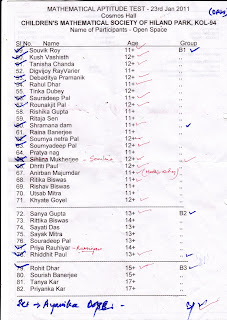 MATHEMATICAL APTITUDE TEST - 23rd Jan 2011
Cosmos Hall
CHILDREN'S MATHEMATICAL SOCIETY OF HILAND PARK, KOL-94
Name of Participants - Open Space
Sl No. Name Age Group
Souvik Roy 11+ B1
50. Kush Vashisth 12+
51. Tanisha Chanda 11+
52. Digvijoy RayVarier 11+
53. Debaditya Pramanik 11+
54. Rahul Dhar 11+
55. Tinka Dubey 12+
56. Sauradeep Pal 11+
57. Rounakjit Pal 11+
58. Rishika Gupta 11+
59. Ritaja Sen 11+
60. Shramana dam 11+
61. Raina Banerjee 11+
62. Soumya nefra Pal 11+
63. Soumyadeep Pal 11+
64. Pratya nag 11+
65. Mukherjee 11+
66. Dhriti Paul 12+
67. Anirban Majumdar 11+
68. Ritika Biswas 11+
69. Rishav Biswas 11+
70. Utsab Mitra 11+
71. Khyate Goyel 12+
72. Sanya Gupta 13+ B2
73. Rittika Biswas 14+
74. Sayati Das 13+
75. Sayak Mitra 13+
76. Souradeep Pal 13+
77. Priya Rauhiyar 14+
78. Rhiddhit Paul 13+
79. Rohit Dhar 15+ B3
80. Sourish Banerjee 15+
81. Tanya Kar 17+
82. Priyanka Kar 17+